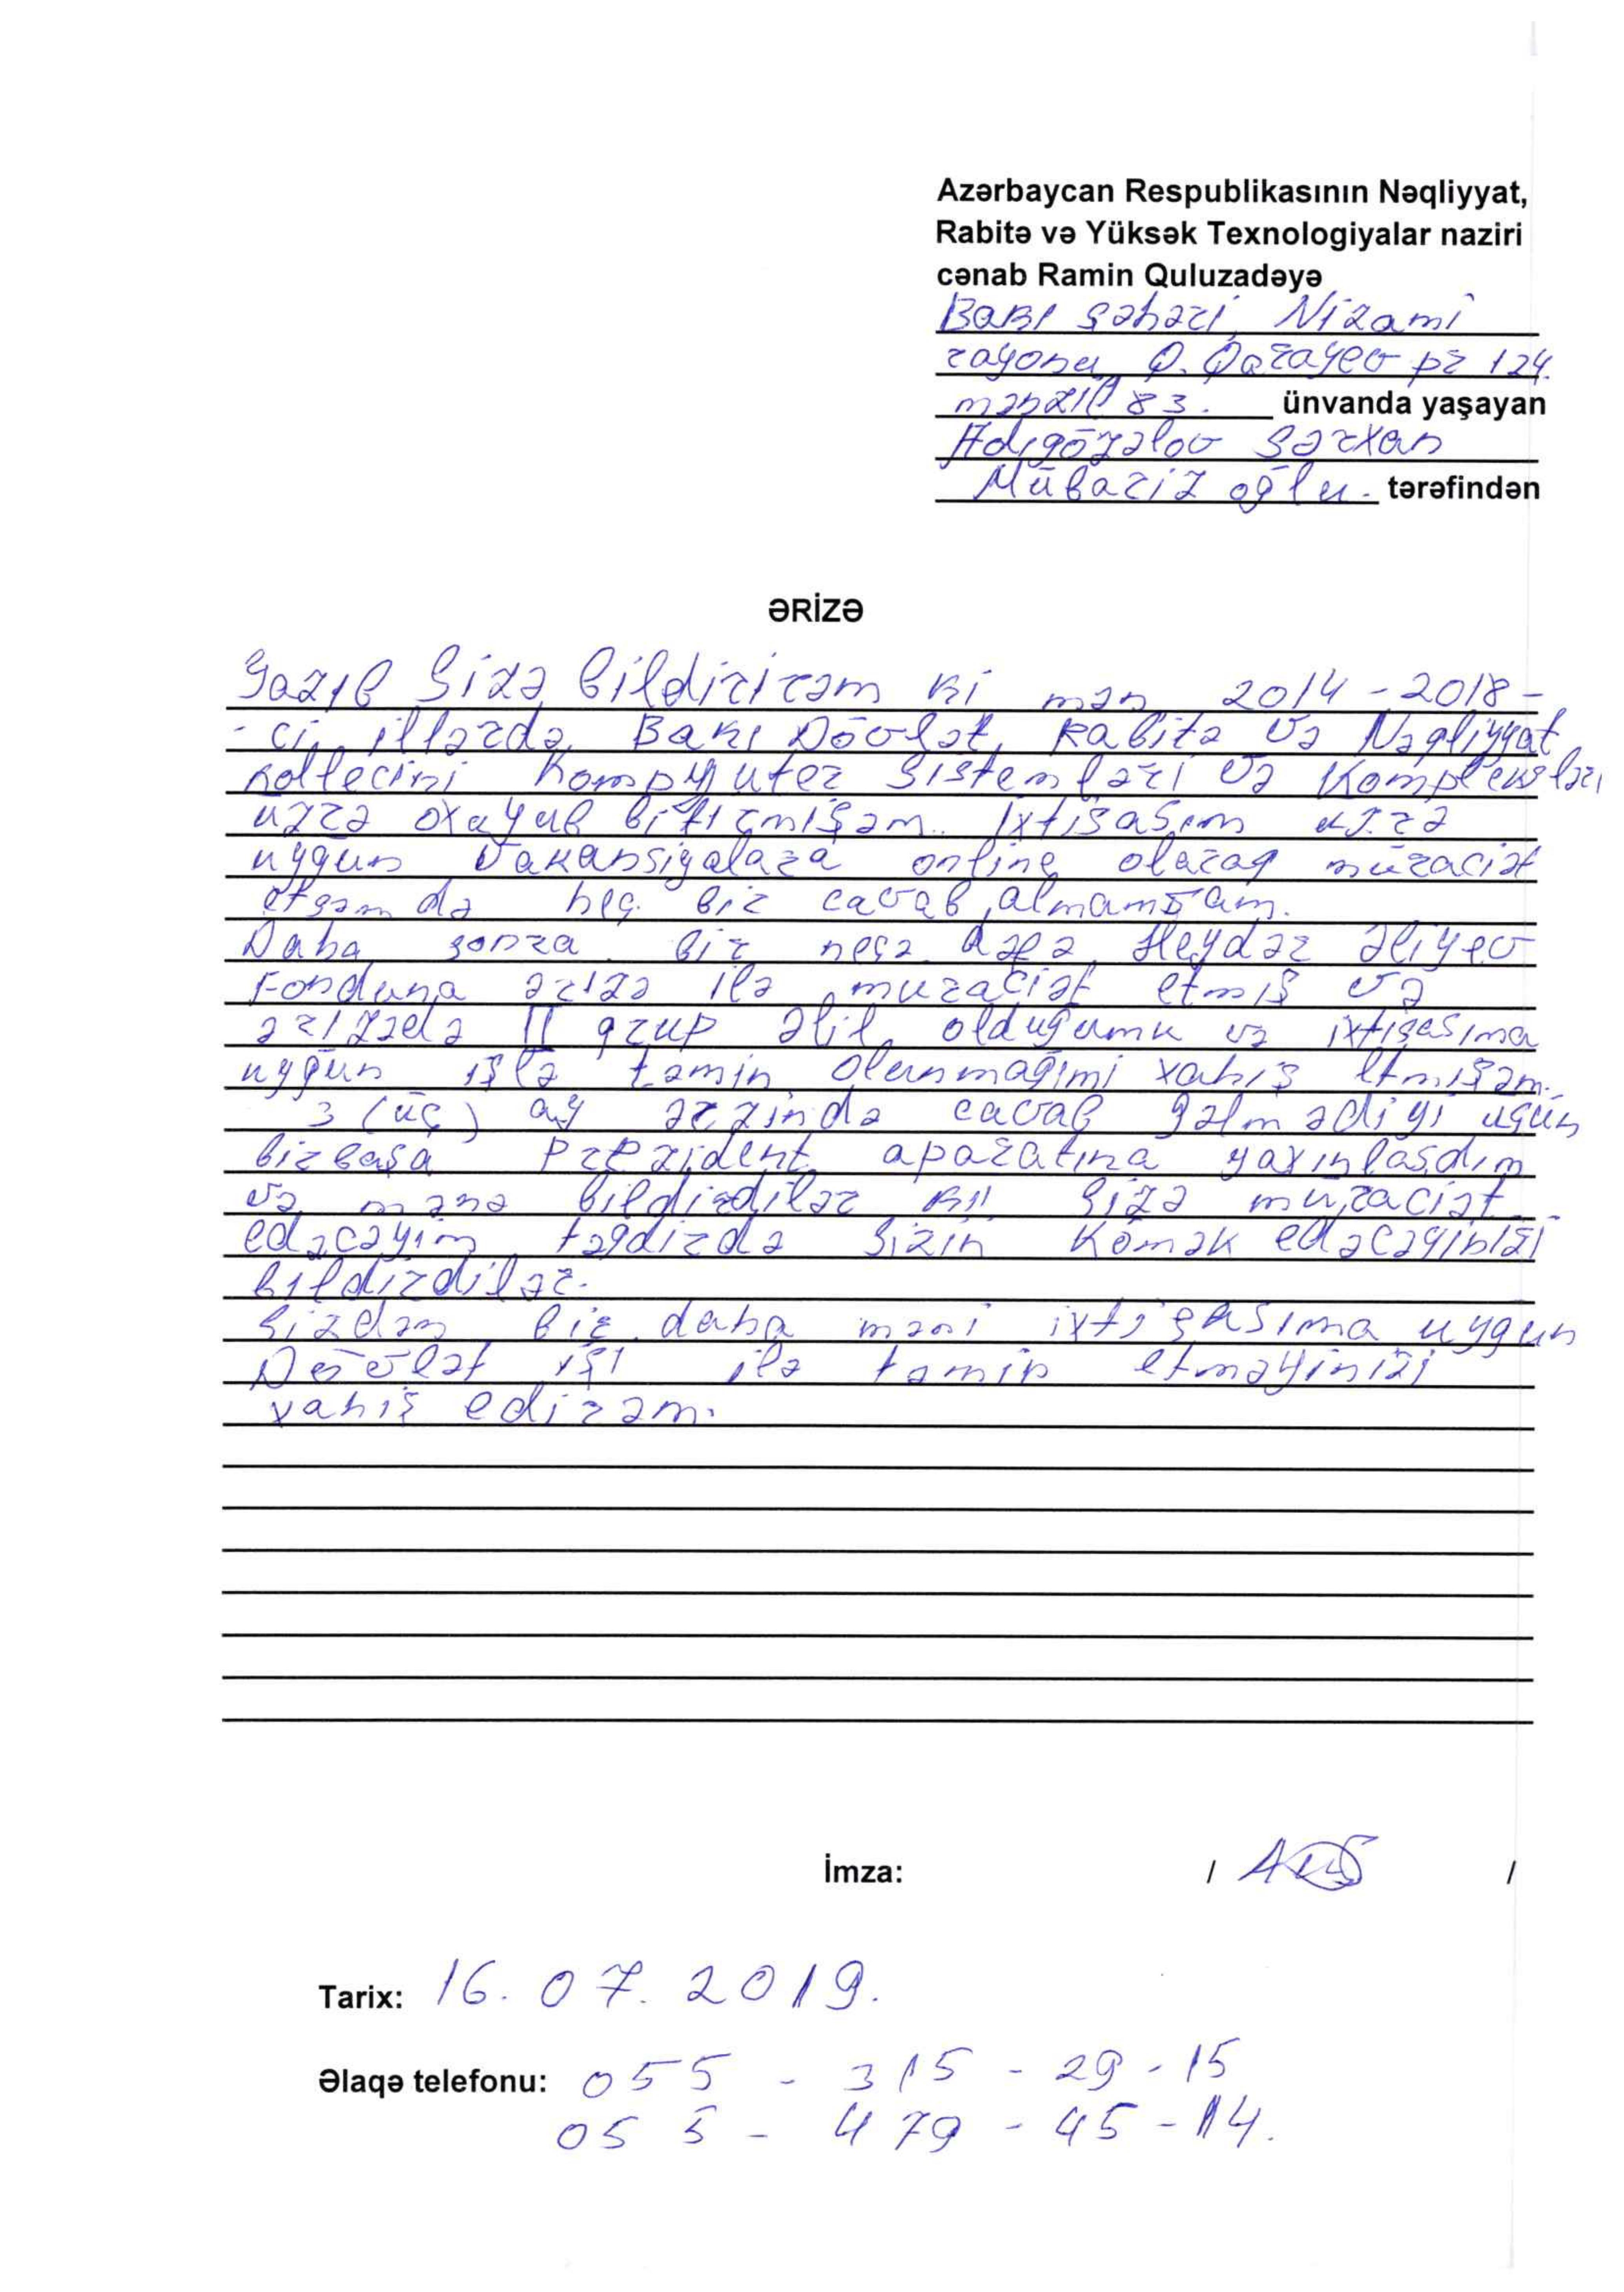 Azərbaycan Respublikasının Nəqliyyat,
Rabitə və Yüksək Texnologiyalar naziri
cənab Ramin Quluzadəyə
Bakı şəhəri, Nizami
rayonu, Q. Qarayev pr 124.
mənzil 83. ünvanda yaşayan
Adıgözəlov Sərxan
Mübariz oğlu. tərəfindən
ƏRİZƏ
Yazıb Sizə bildirirəm ki mən 2014-2018-
-ci illərdə Bakı Dövlət Rabitə və Nəqliyyat
Kollecini Kompyuter Sistemləri və Kompleksləri
üzrə oxuyub bitirmişəm. İxtisasım üzrə
uyğun vakansiyalara online olaraq müraciət
etsəm də heç bir cavab almamışam.
Daha sonra bir neçə dəfə Heydər Əliyev
Fonduna ərizə ilə muraciət etmiş və
ərizədə II qrup əlil olduğumu və ixtisasıma
uyğun işlə təmin olunmağımi xahiş etmişəm.
3 (üç) ay ərzində cavab gəlmədiyi üçün
birbaşa Prezident aparatına yaxınlaşdım
və mənə bildirdilər ki Sizə müraciət
edəcəyim təqdirdə Sizin kömək edəcəyinizi
bildirdilər.
Sizdən bir daha məni ixtisasıma uyğun
Dövlət işi ilə təmin etməyinizi
xahiş edirəm.
İmza: / /
Tarix: 16.07.2019.
Əlaqə telefonu: 055 - 315 - 29 - 15
055 - 479 - 45 - 14.